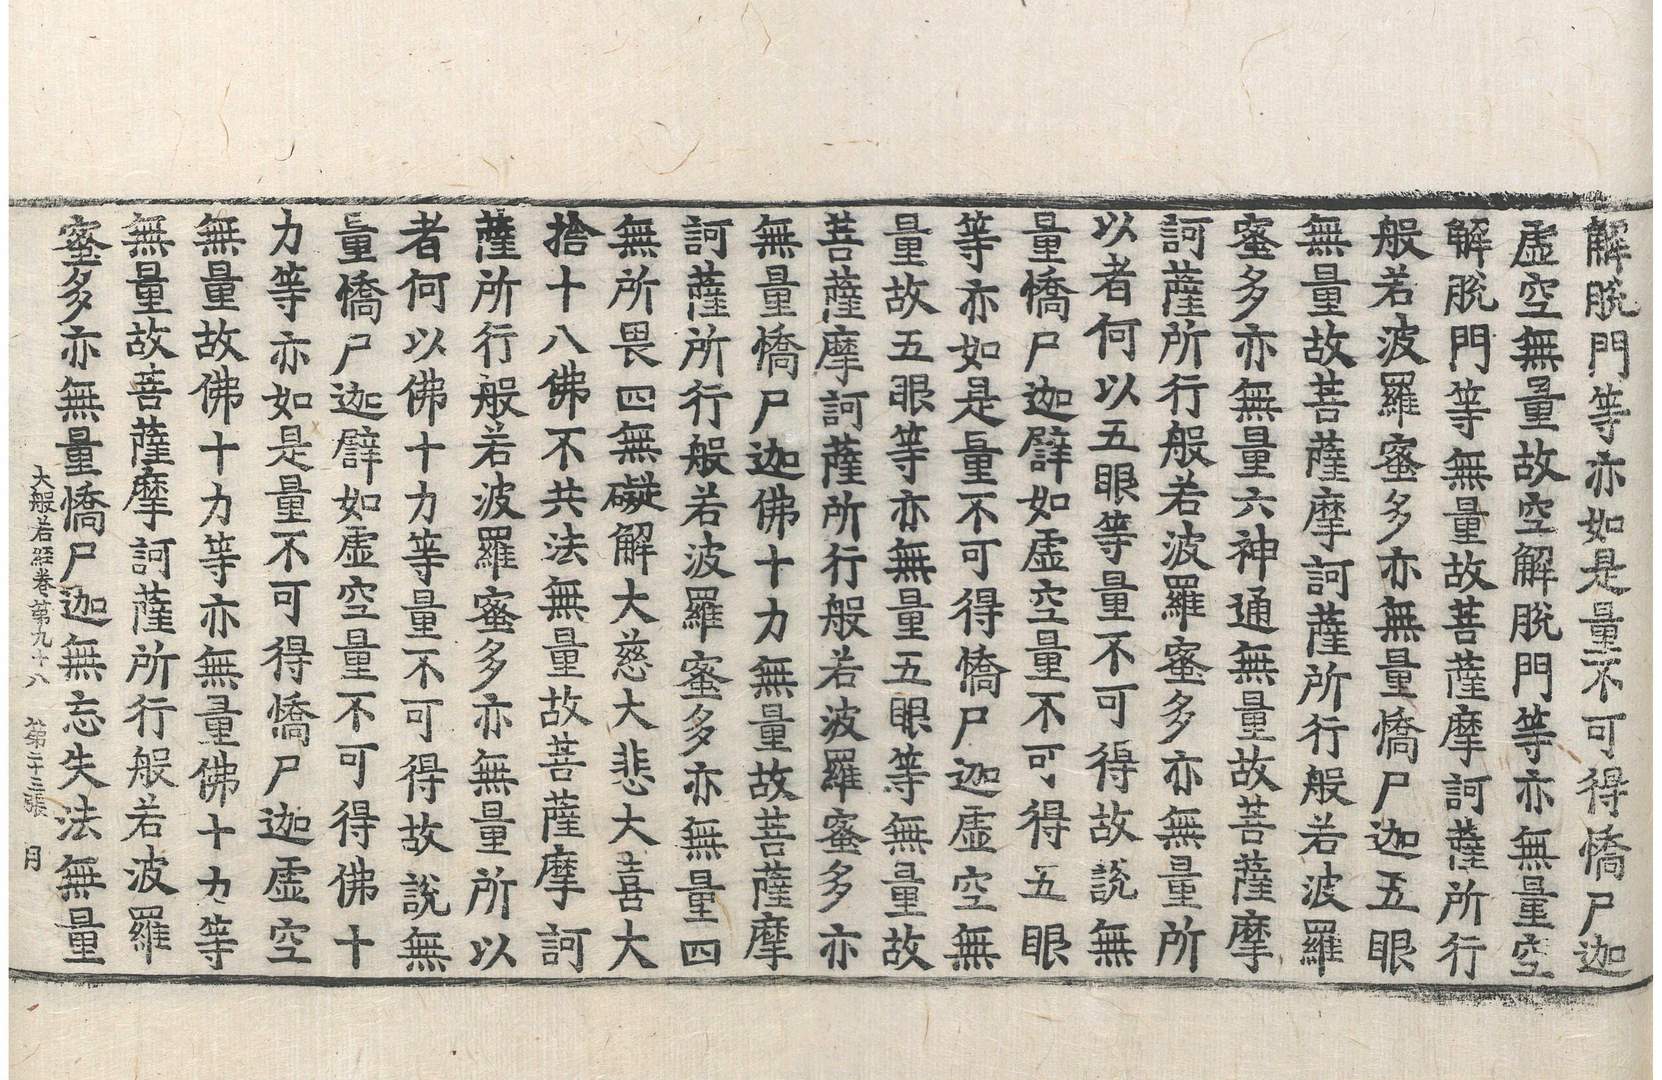 解脫門等亦如是量不可得憍尸迦
虛空無量故空解脫門等亦無量空
解脫門等無量故菩薩摩訶薩所行
般若波羅蜜多亦無量憍尸迦五眼
無量故菩薩摩訶薩所行般若波羅
蜜多亦無量六神通無量故菩薩摩
訶薩所行般若波羅蜜多亦無量所
以者何以五眼等量不可得故說無
量憍尸迦譬如虛空量不可得五眼
等亦如是量不可得憍尸迦虛空無
量故五眼等亦無量五眼等無量故
菩薩摩訶薩所行般若波羅蜜多亦
無量憍尸迦佛十力無量故菩薩摩
訶薩所行般若波羅蜜多亦無量四
無所畏四無礙解大慈大悲大喜大
捨十八佛不共法無量故菩薩摩訶
薩所行般若波羅蜜多亦無量所以
者何以佛十力等量不可得故說無
量憍尸迦譬如虛空量不可得佛十
力等亦如是量不可得憍尸迦虛空
無量故佛十力等亦無量佛十力等
無量故菩薩摩訶薩所行般若波羅
蜜多亦無量憍尸迦無忘失法無量
大般若經卷第九十八 第二十三張 月